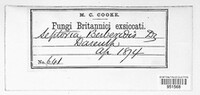 M. C. COOKE.
Fungi Britannici exsiccati.
Septoria Berberidis
Darenth
Ap. 1874
No. 641